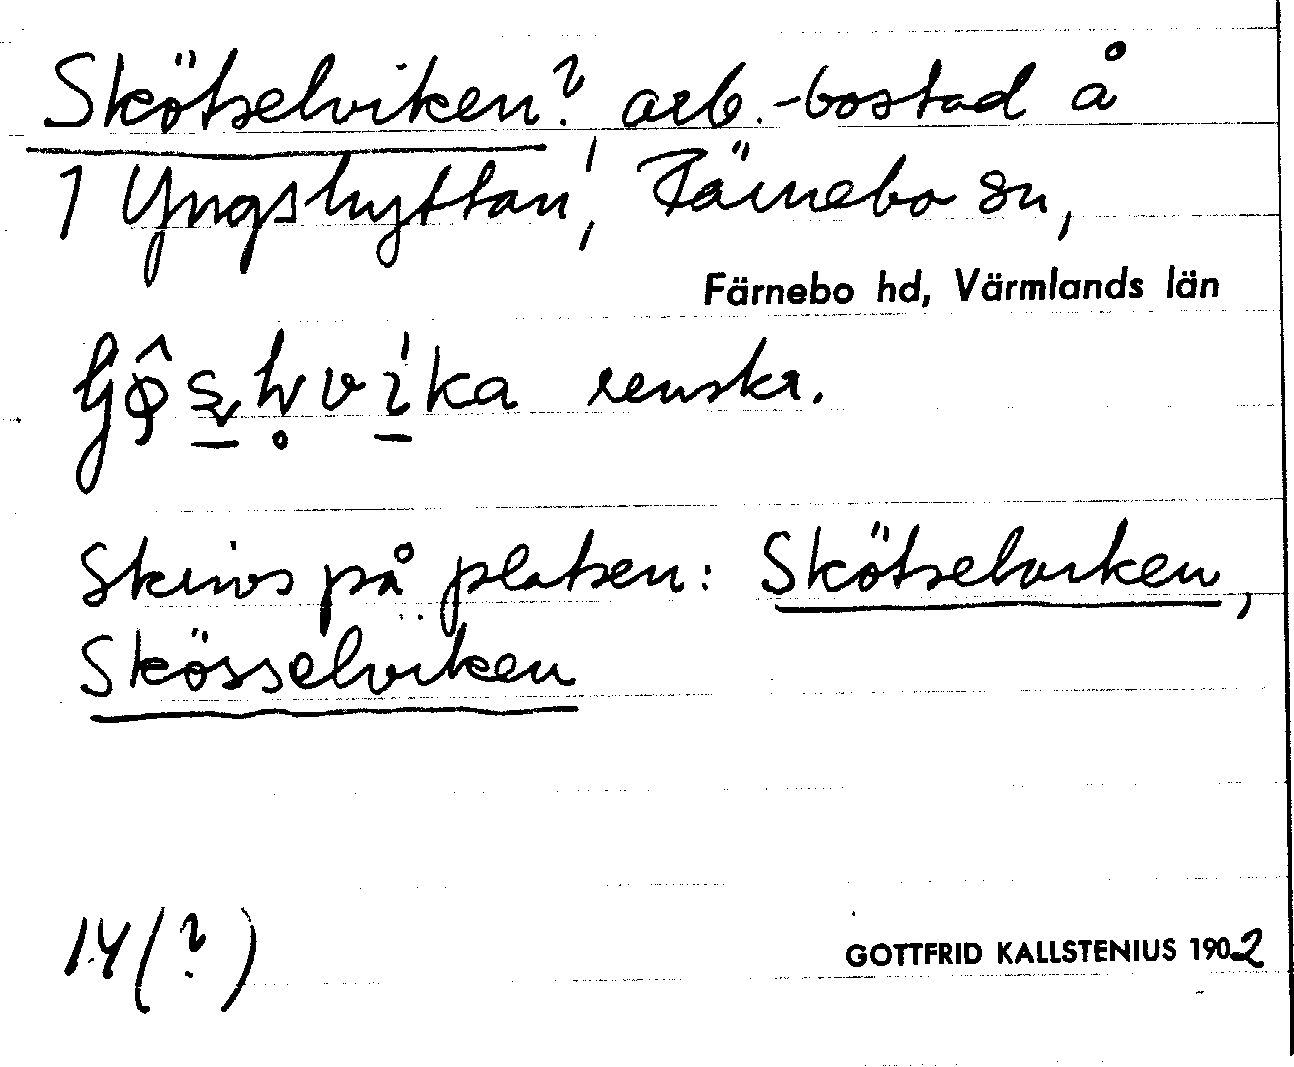 Skötselviken? arb.-bostad å
1 Yngshyttan, Färnebo sn,
Färnebo hd, Värmlands län
renskr.
Skrivs på platsen: Skötselviken,
Skösselviken
14(?)
GOTTFRID KALLSTENIUS 1902